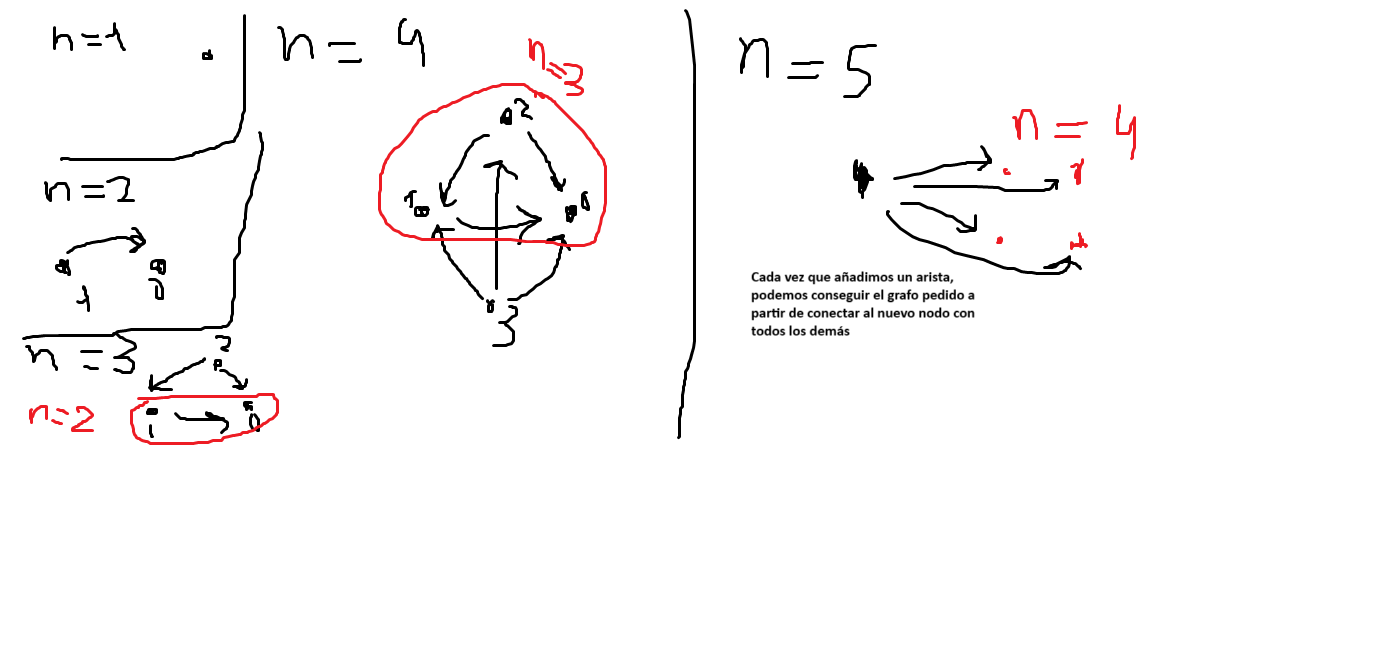 n=1
n=2
1
0
n=3
2
n=2
1
0
n=4
n=3
2
1
0
3
n=5
n=4
Cada vez que añadimos un arista,
podemos conseguir el grafo pedido a
partir de conectar al nuevo nodo con
todos los demás